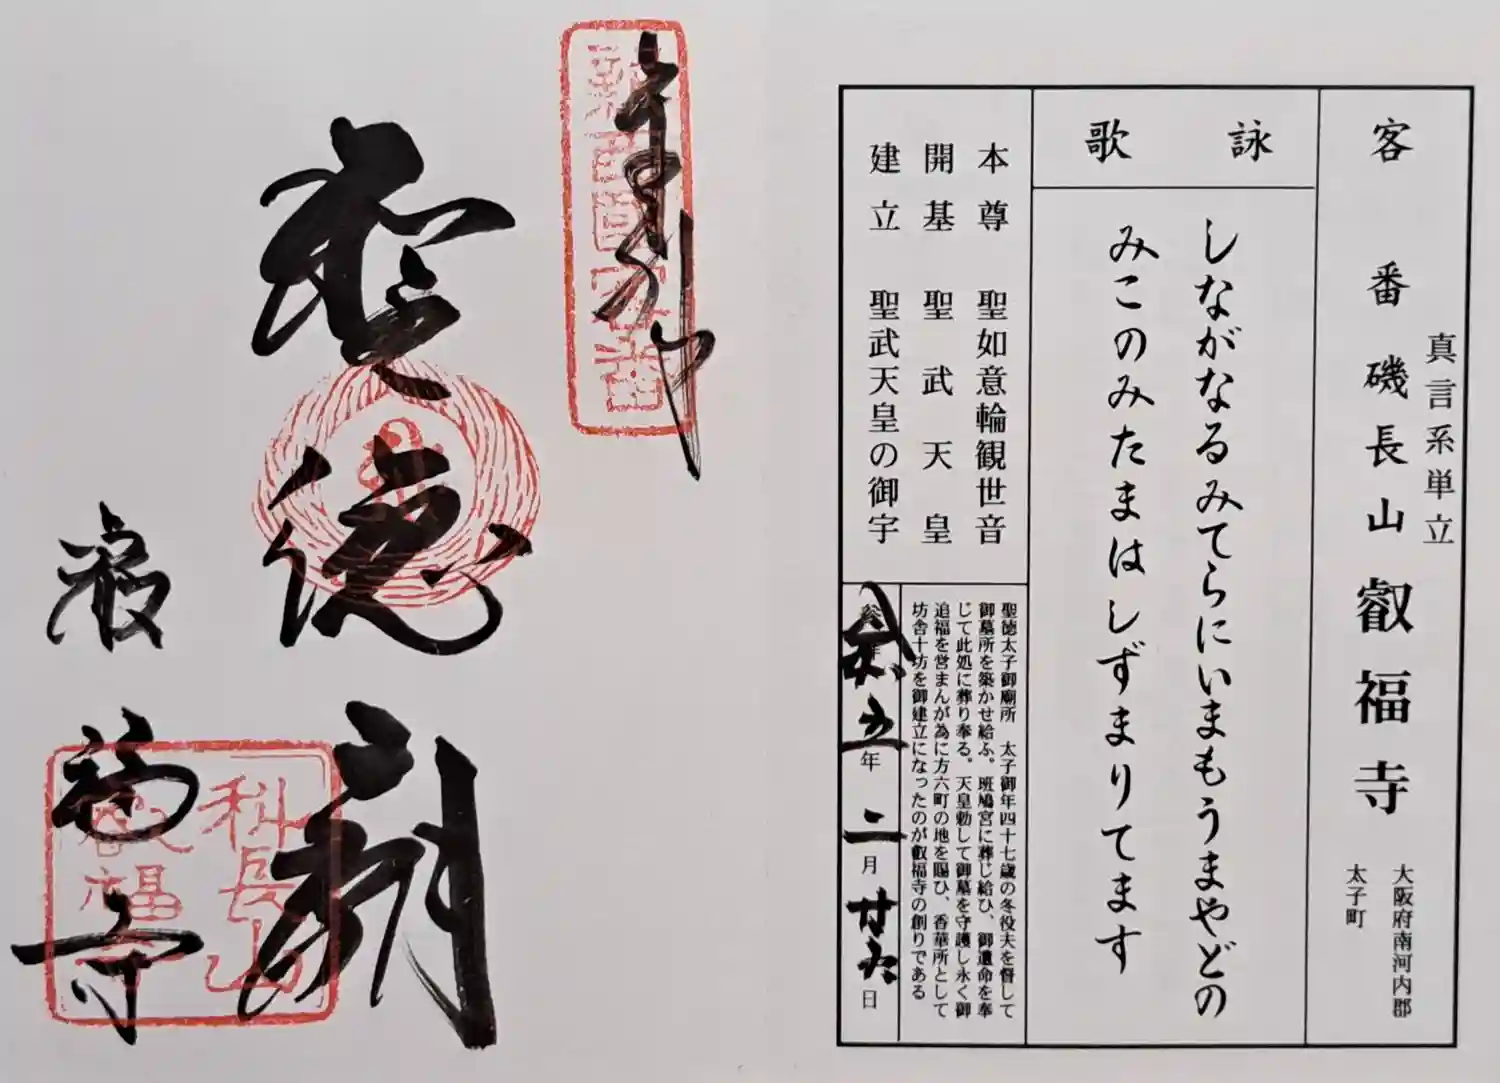 奉拝
聖徳廟
叡福寺
新西国客番
科長山
叡福寺
客番 磯長山 叡福寺
真言系単立
大阪府南河内郡
太子町
詠歌
しながなるみてらにいまもうまやどの
みこのみたまはしずまりてます
本尊 聖如意輪観世音
開基 聖武天皇
建立 聖武天皇の御宇
聖徳太子御廟所 太子御年四十七歳の冬役夫を督して
御墓所を築かせ給ふ、斑鳩宮に葬じ給ひ、御遺命を奉
じて此処に葬り奉る。天皇勅して御墓を守護し永く御
追福を営まんが為に方六町の地を賜ひ、香華所として
坊舎十坊を御建立になったのが叡福寺の創りである
五年二月廿六日